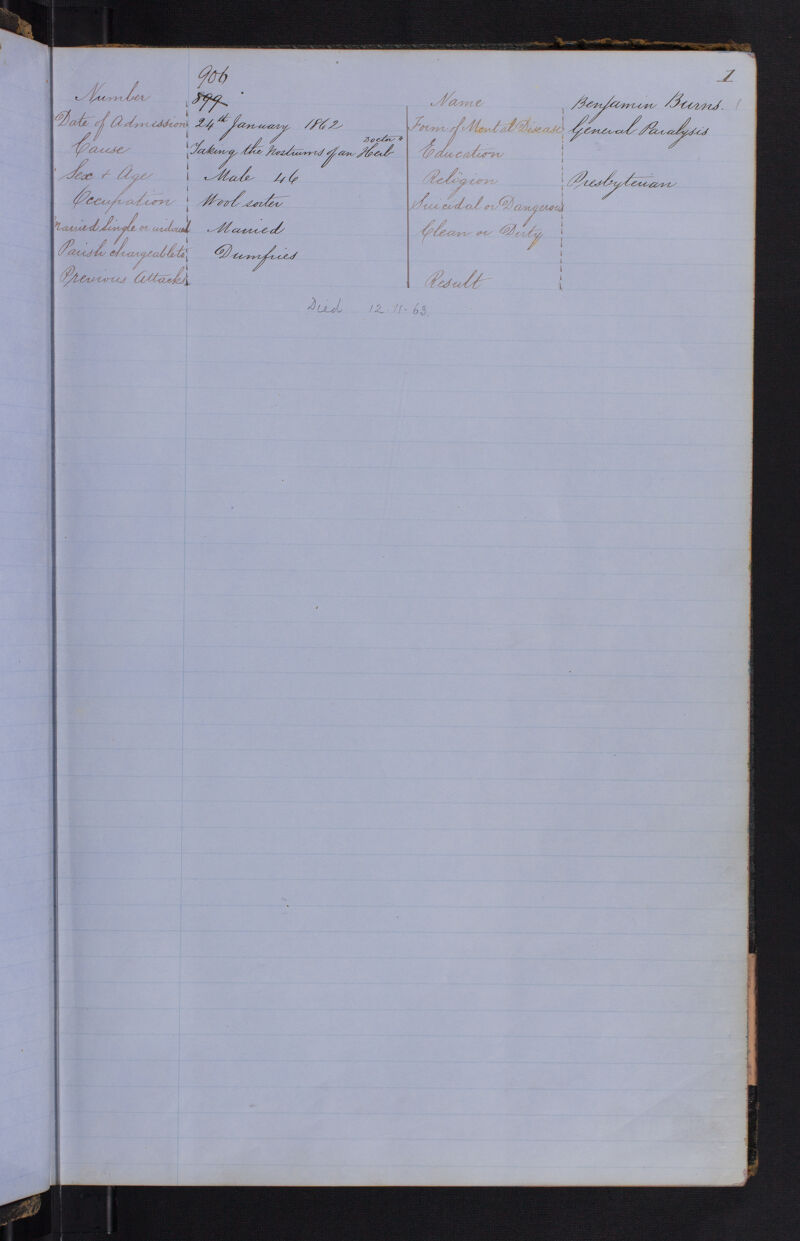 906 1
Number 899 Name Benjamin Burns.
Date of Admission 24th January 1862 Form of Mental Disease General Paralysis
Cause Taking the Nostrums of an Herb Doctor Education
Sex & Age Male 46 Religion Presbyterian
Occupation Wool sorter Suicidal or Dangerous
Married Single or widowed Married Clean or Dirty
Parish chargeable to Dumfries
Previous Attacks Result
Died 12.11.63.